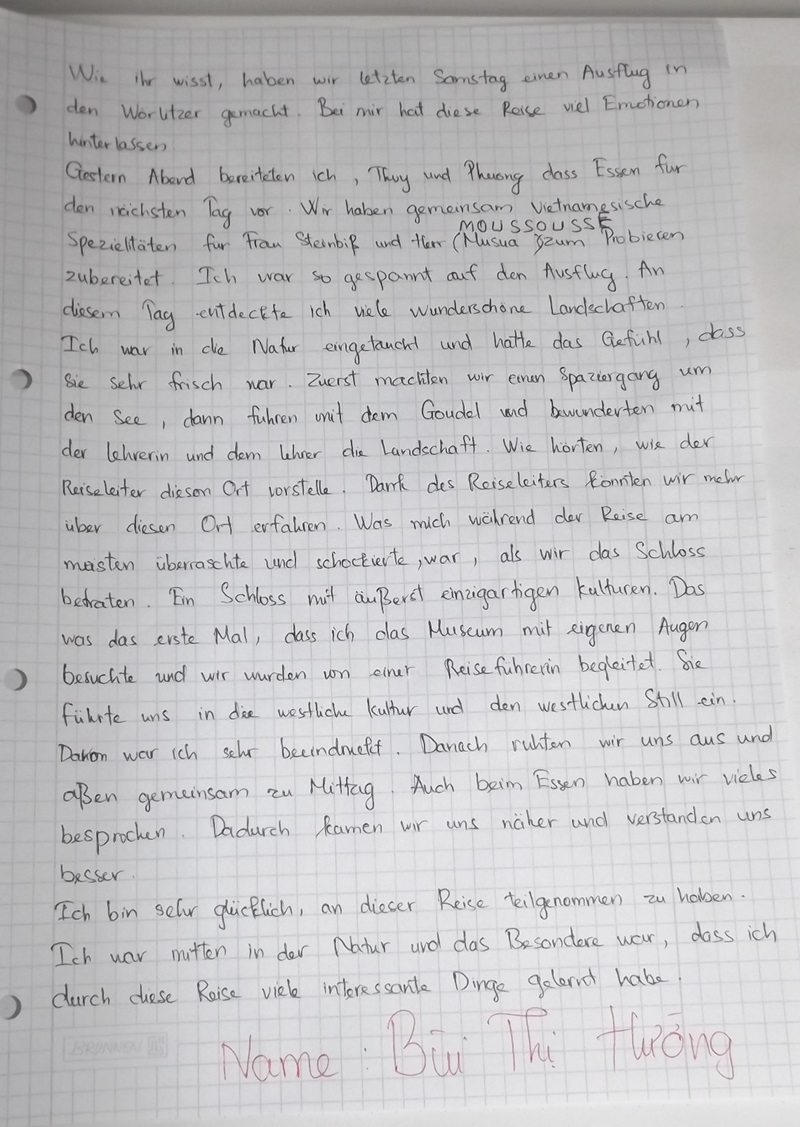 Wie ihr wisst, haben wir letzten Samstag einen Ausflug in
den Wörlitzer gemacht. Bei mir hat diese Reise viel Emotionen
hinterlassen
Gestern Abend bereiteten ich, Thuy und Phuong dass Essen für
den nächsten Tag vor. Wir haben gemeinsam vietnamesische
MOUSSOUSSE
Spezielitäten für Frau Steinbiß und Herr (Musua) zum Probieren
zubereitet. Ich war so gespannt auf den Ausflug. An
diesem Tag entdeckte ich viele wunderschöne Landschaften.
Ich war in die Natur eingetaucht und hatte das Gefühl, dass
Sie sehr frisch war. Zuerst machten wir einen Spaziergang um
den See, dann fuhren mit dem Goudel und bewunderten mit
der Lehrerin und dem Lehrer die Landschaft. Wie hörten, wie der
Reiseleiter diesen Ort vorstelle. Dank des Reiseleiters könnten wir mehr
über diesen Ort erfahren. Was mich während der Reise am
meisten überraschte und schockierte, war, als wir das Schloss
betraten. Ein Schloss mit äußerst einzigartigen Kulturen. Das
was das erste Mal, dass ich das Museum mit eigenen Augen
besuchte und wir wurden von einer Reiseführerin begleitet. Sie
führte uns in die westliche Kultur und den westlichen Still ein.
Davon war ich sehr beeindruckt. Danach ruhten wir uns aus und
aßen gemeinsam zu Mittag. Auch beim Essen haben wir vieles
besprochen. Dadurch kamen wir uns näher und verstanden uns
besser.
Ich bin sehr glücklich, an dieser Reise teilgenommen zu haben.
Ich war mitten in der Natur und das Besondere war, dass ich
durch diese Reise viele interessante Dinge gelernt habe.
BRUNNEN
Name : Bùi Thị Hường